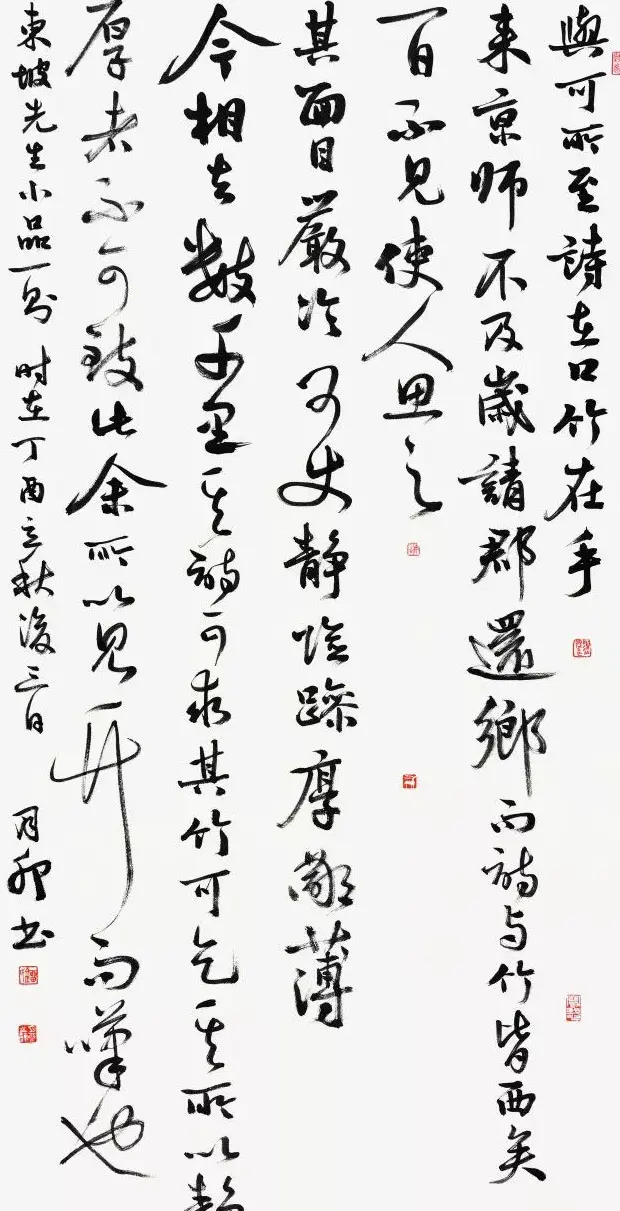 與可所至詩在口竹在手
来京师不及歲請郡還鄉而詩与竹皆西矣
一日不見使人思之
其面目嚴冷可使静险躁厚鄙薄
今相去数千里其詩可求其竹可乞其所以静
厚者不可致此余所以見竹而嘆也
東坡先生小品一则 时在丁酉立秋後三日 书